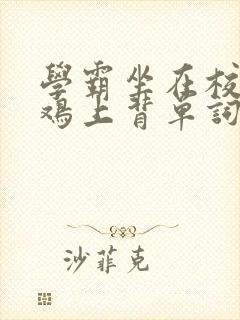 學霸坐在校
鸡上背單詞
沙菲克